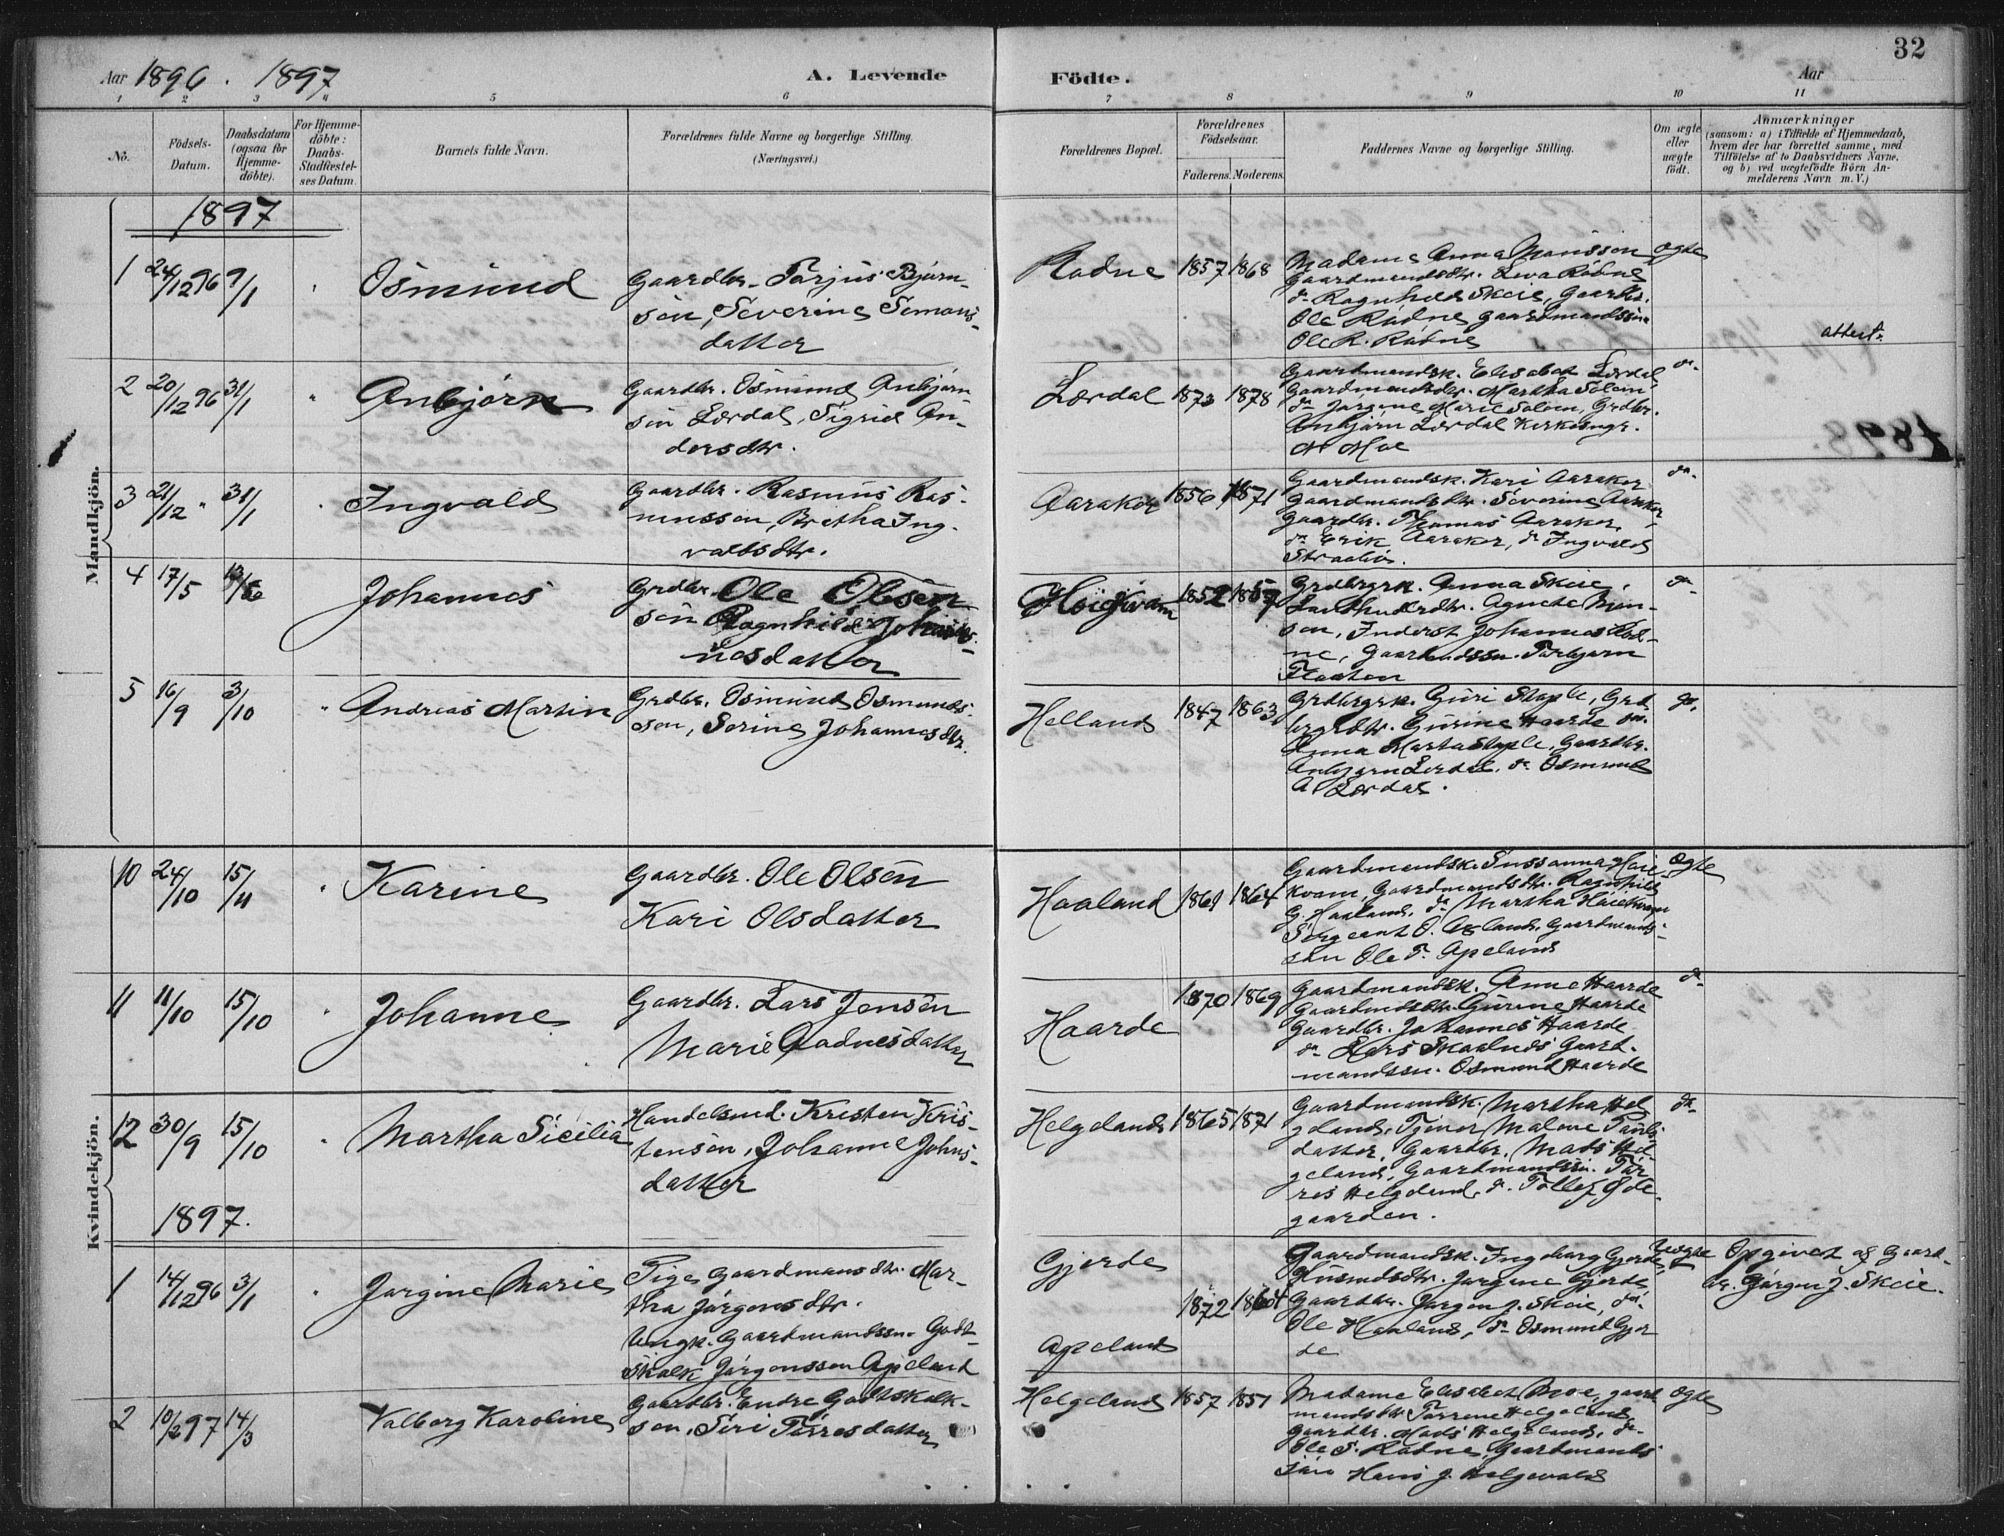 32
Aar 1896. 1897
A. Levende
Födte.
Aar
1 2 3 4 5 6 7 8 9 10 11
No.
Födsels-
Datum.
Daabsdatum
(ogsaa for
Hjemme-
döbte).
For Hjemme-
döbte:
Daabs-
Stadfæstel-
ses Datum.
Barnets fulde Navn.
Forældrenes fulde Navne og borgerlige Stilling.
(Næringsvei.)
Forældrenes Bopæl.
Forældrenes
Födselsaar.
Faderens. Moderens.
Faddernes Navne og borgerlige Stilling.
Om ægte
eller
uægte
födt.
Anmærkninger
(saasom: a) i Tilfælde af Hjemmedaab,
hvem der har forrettet samme, med
Tilföielse af to Daabsvidners Navne,
og b) ved uægtefödte Börn An-
melderens Navn m. V.)
Mandkjön.
1897
1 24/12 96 9/1 Osmund
Gaardbr. Tarjus Bjørn-
sen, Severine Simons-
datter
Rødne 1857 1868
Madame Anna Monsson
Gaardmandsdtr. Lena Rødne
do Ragnhild Skeie, Gaardbr.
Ole Rødne gaardmandssøn
Ole R. Rødne
ægte
attest.
2 20/12 96 31/1 Anbjörn
Gaardbr. Osmund Anbjørn
sön Lærdal, Sigrid An-
dersdtr.
Lærdal 1873 1878
Gaardmandsk. Elisabet Lærdal
Gaardmandsdtr. Martha
do Jorgine Marie, Grdbr.
Anbjørn Lærdal Kirkesngr.
M Moe
do
3 21/12 " 31/1 Ingvald
Gaardbr. Rasmus Ras-
mussen, Bertha Ing-
valdsdtr.
Aarakor 1856 1871
Gaardmandsk. Kari Aarakor
gaardmandsdtr. Severine Aarakor,
Gaardbr. Thomas Aarakor,
do Erik Aarakor, do Ingvald
do
4 17/5 Johannes
Grdbr. Ole Olsen
sön Ragnhild Johan-
nesdatter
Höiekvam 1852 1857
Grdbrgrk. Anna Skeie,
Agnete
sen, Inderst Johannes Rød-
ne, Gaardmdssn. Torbjørn
do
5 16/9 3/10 Andreas Martin
Grdbr. Osmund Osmunds-
son, Sorine Johannesdtr.
Helland 1847 1863
Grdbrgrk. Guri Staple, Grd
brgrdtr. Gurine Haarde do
Anna Marta Staple, Gaardbr.
Anbjørn Lærdal, do Osmund
A. Lærdal.
Kvindekjön.
10 24/10 15/11 Karine
Gaardbr. Ole Olsen
Kari Olsdatter
Haaland 1861 1864
Gaardmandsk. Sussanna Høie
kvam, Gaardmandsdtr. Ragnhild
G. Haaland, do Martha Høiekvam
Sergeant O. Apland, Gaardmands-
søn Ole T. Apeland
ægte
11 11/10 15/10 Johanne
Gaardbr. Lars Jensen
Marie Gudnesdatter
Haarde 1870 1869
Gaardmandsk. Anne Haarde
Gaardmdsdtr. Gurine Haarde
Gaardbr. Johannes Haarde
do Lars Skaalnes Gaard-
mandssn. Osmund Haarde
do
12 30/9 15/10 Martha Sicilia
Handelsmd. Kristen Kris-
tensen, Johanne Johns-
datter
Helgeland 1865 1871
Gaardmandsk. Martha Hel
geland, Tjener Malene Pauls-
datter, Gaardbr. Mads Hel-
geland, Gaardmandssn. Tør-
res Helgeland, do Tollef Øde-
gaarden.
do
1897.
1 14/12 96 3/1 Jorgine Marie
Pige Gaardmansdtr. Mar-
tha Jørgensdtr.
Ungk. Gaardmandssn. Godt-
skalk Jørgenssen Apeland
Gjerde
Apeland
1872 1864
Gaardmandsk. Ingeborg Gjerde
Husmdsdtr. Jørgine Gjerde,
Gaardbr. Jørgen J. Skeie, do
Ole Haaland, do Osmund Gjer
de
Uægte
Opgivet af Gaard-
br. Jørgen J. Skeie.
2 10/2 97 14/3 Valborg Karoline
Gaardbr. Endre Godtskalk-
sen, Siri Tørresdatter
Helgeland 1857 1851
Madame Elisabet Moe, gaard
mandsdtr. Tørrene Helgeland,
Gaardbr. Mads Helgeland, do
Ole T. Rødne, Gaardmands
søn Hans J. Helgeland
ægte